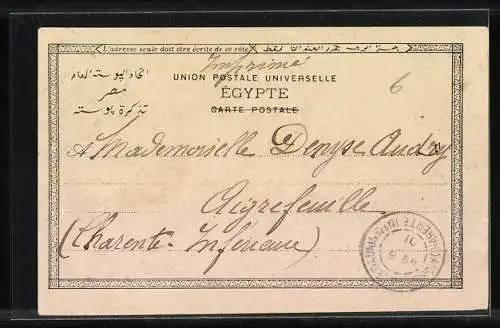 L'adresse seule doit être écrite de ce côté
Imprimé
UNION POSTALE UNIVERSELLE
اتحاد البوستة العام
6
ÉGYPTE
مصر
CARTE POSTALE
تذكرة بوستة
A Mademoiselle Denyse Audry
Aigrefeuille
(Charente Inférieure)